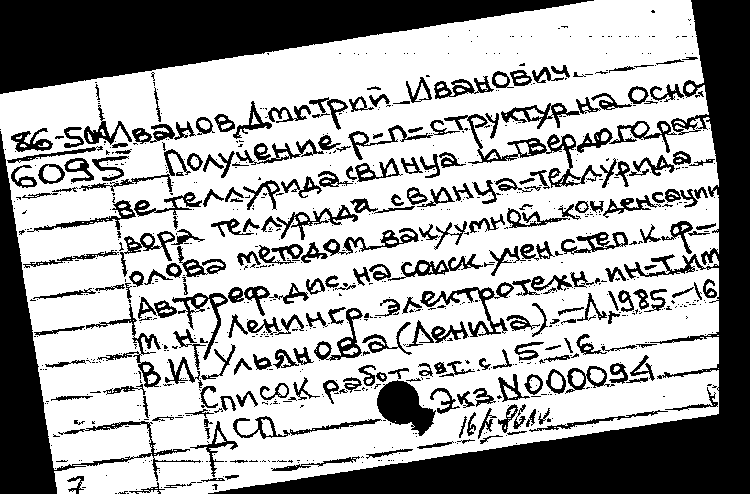 86-5дл Иванов, Дмитрий Иванович.
6095 Получение p-n-структур на осно-
ве теллурида свинца и твердого раст-
вора теллурида свинца-теллурида
олова методом вакуумной конденсации
Автореф. дис. на соиск. учен. степ. к. ф.-
м. н. / Ленингр. электротехн. ин-т им
В.И. Ульянова (Ленина). — Л., 1985.-16
Список работ авт.: с 15-16.
ДСП. Экз. N000094.
7